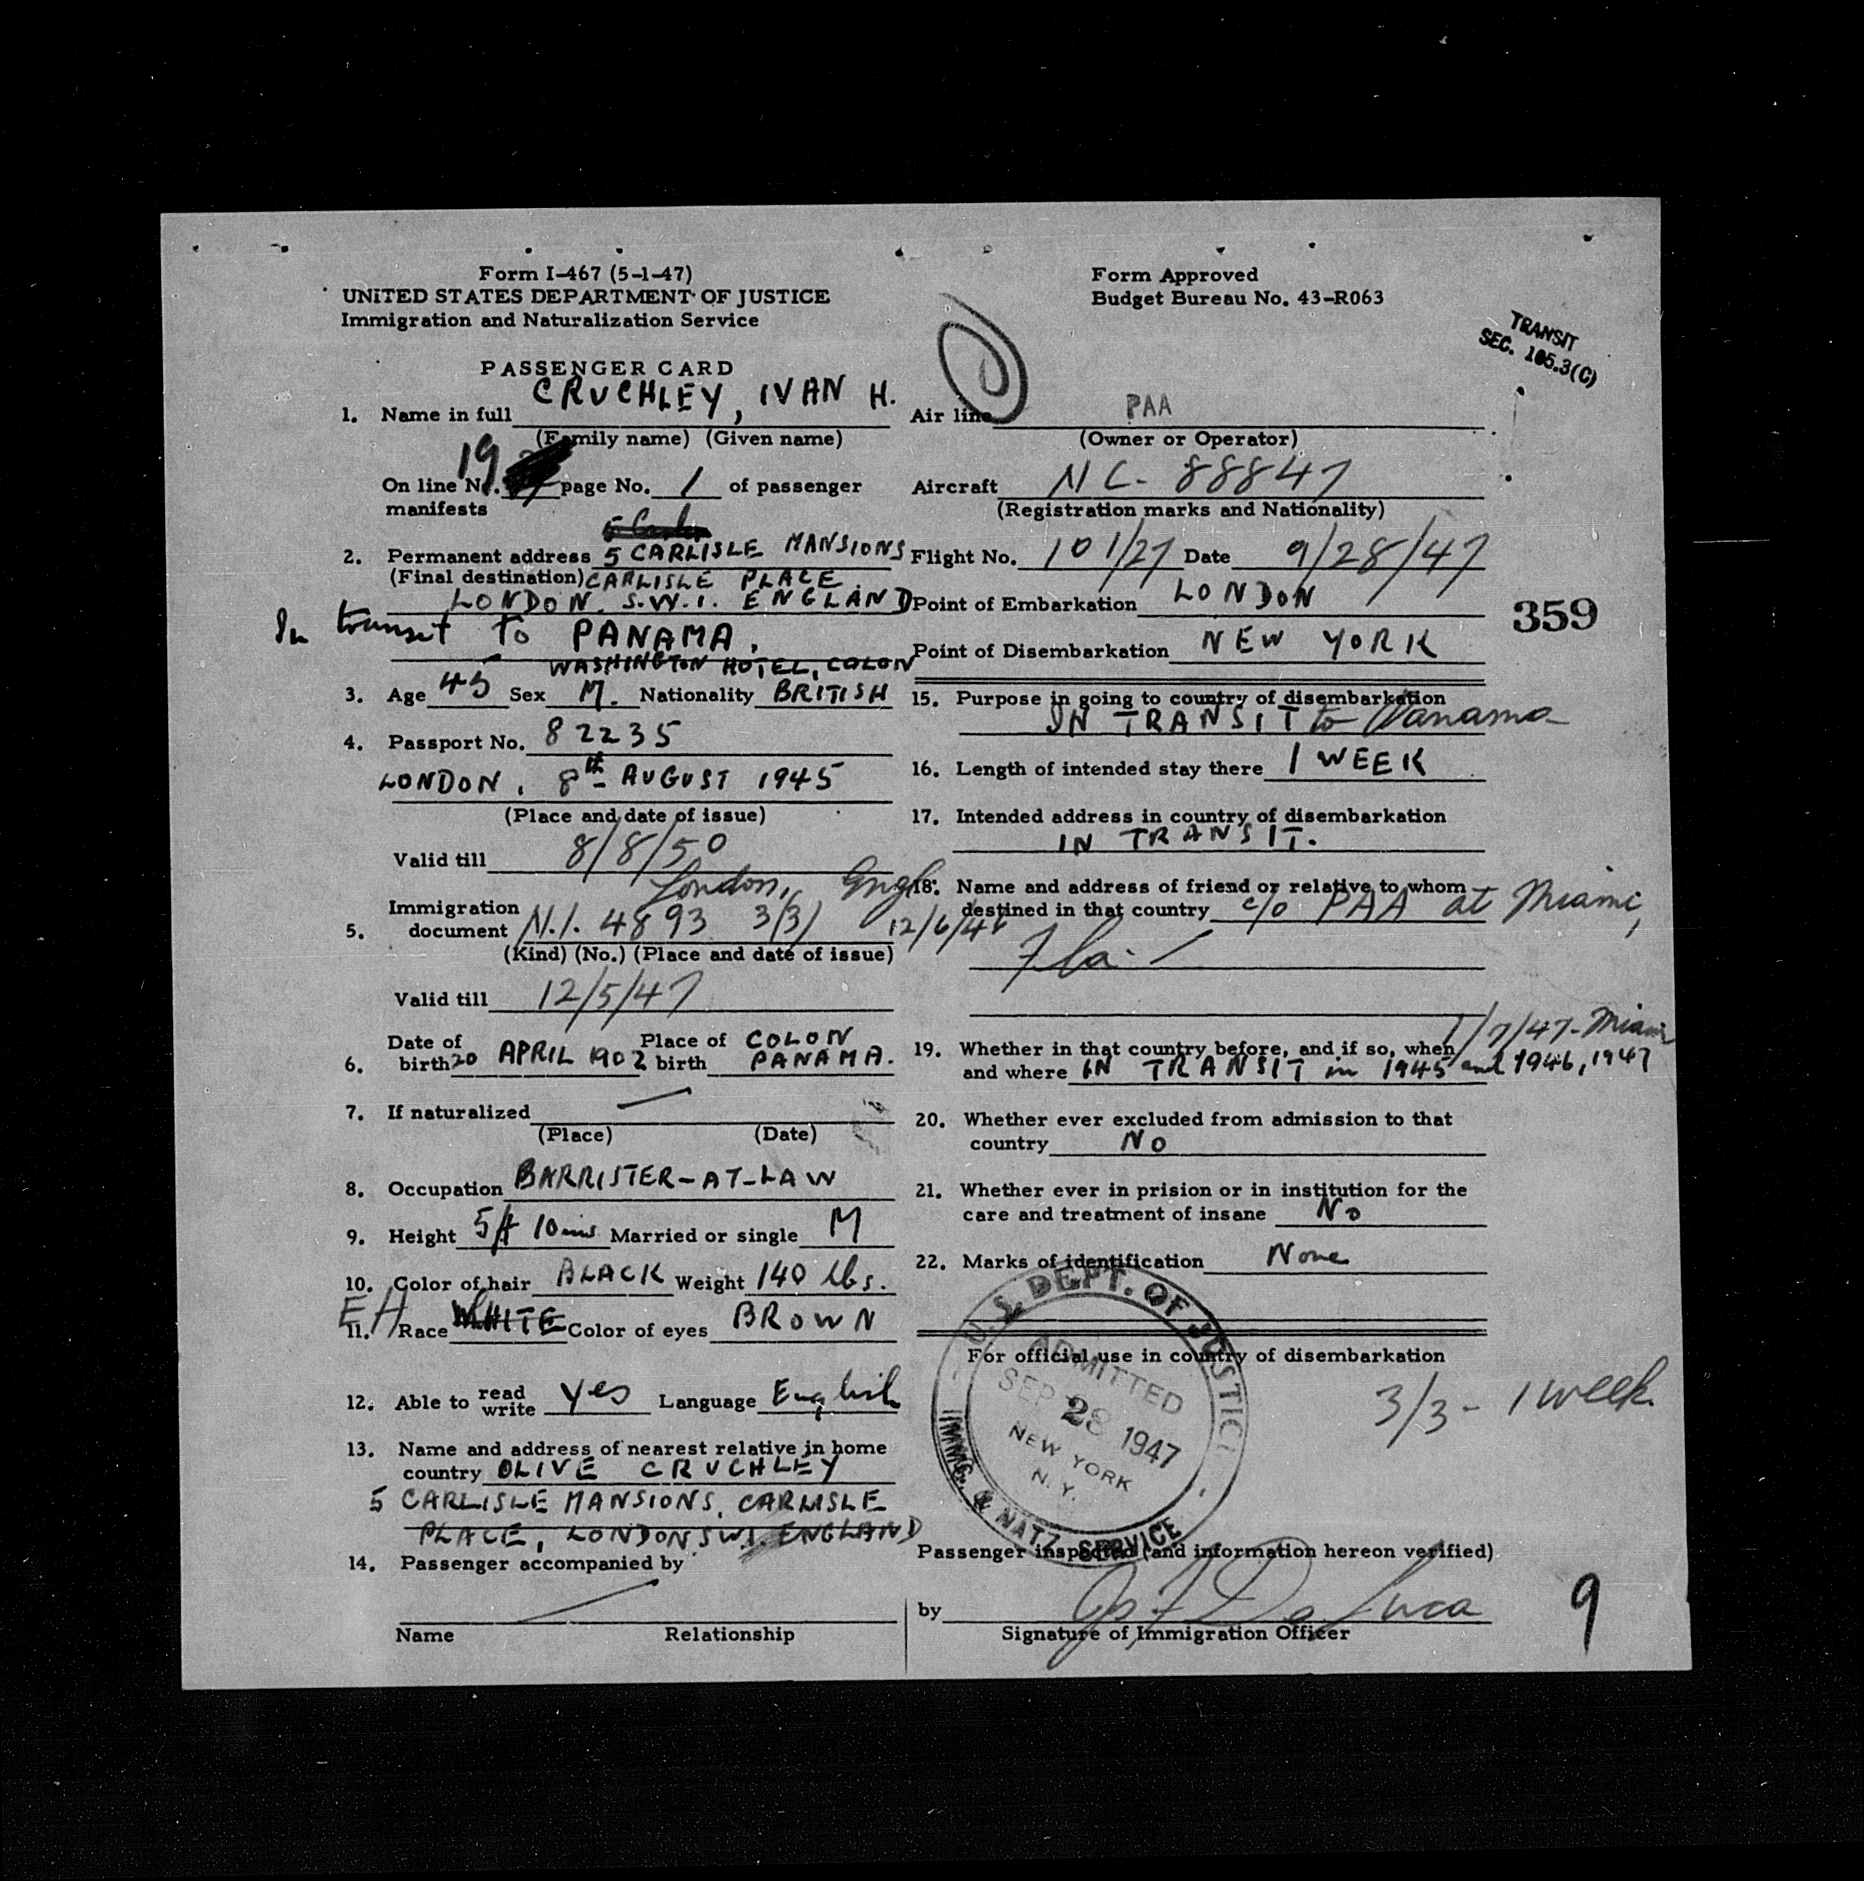 Form I-467 (5-1-47)
UNITED STATES DEPARTMENT OF JUSTICE
Immigration and Naturalization Service
PASSENGER CARD
1. Name in full CRUCHLEY, IVAN H.
(Family name) (Given name)
19
On line No. page No. 1 of passenger
manifests
2. Permanent address 5 CARLISLE MANSIONS
(Final destination) CARLISLE PLACE
LONDON. S.W.1. ENGLAND
In transit to PANAMA,
WASHINGTON HOTEL, COLON
3. Age 45 Sex M. Nationality BRITISH
4. Passport No. 82235
LONDON, 8th AUGUST 1945
(Place and date of issue)
Valid till 8/8/50
London, Engl.
5. Immigration document N.I. 4893 3(3) 12/6/46
(Kind) (No.) (Place and date of issue)
Valid till 12/5/47
6. Date of birth 20 APRIL 1902 Place of birth COLON PANAMA.
7. If naturalized
(Place) (Date)
8. Occupation BARRISTER-AT-LAW
9. Height 5ft 10ins Married or single M
10. Color of hair BLACK Weight 140 lbs.
11. Race WHITE Color of eyes BROWN
12. Able to read write Yes Language English
13. Name and address of nearest relative in home
country OLIVE CRUCHLEY
5 CARLISLE MANSIONS, CARLISLE
PLACE, LONDON SW1. ENGLAND
14. Passenger accompanied by
Name Relationship
Form Approved
Budget Bureau No. 43-R063
TRANSIT
SEC. 105.3(C)
Air line PAA
(Owner or Operator)
Aircraft NC- 88847
(Registration marks and Nationality)
Flight No. 101/27 Date 9/28/47
Point of Embarkation LONDON
359
Point of Disembarkation NEW YORK
15. Purpose in going to country of disembarkation
IN TRANSIT to Panama
16. Length of intended stay there 1 WEEK
17. Intended address in country of disembarkation
IN TRANSIT.
18. Name and address of friend or relative to whom
destined in that country c/o PAA at Miami,
Fla.
1/7/47-Miami
19. Whether in that country before, and if so, when
and where IN TRANSIT in 1945 and 1946, 1947
20. Whether ever excluded from admission to that
country No
21. Whether ever in prision or in institution for the
care and treatment of insane No
22. Marks of identification None
For official use in country of disembarkation
3/3 - 1 week.
U. S. DEPT. OF JUSTICE
ADMITTED
SEP 28 1947
NEW YORK
N. Y.
IMMG. & NATZ. SERVICE
Passenger inspected (and information hereon verified)
by
Signature of Immigration Officer
9